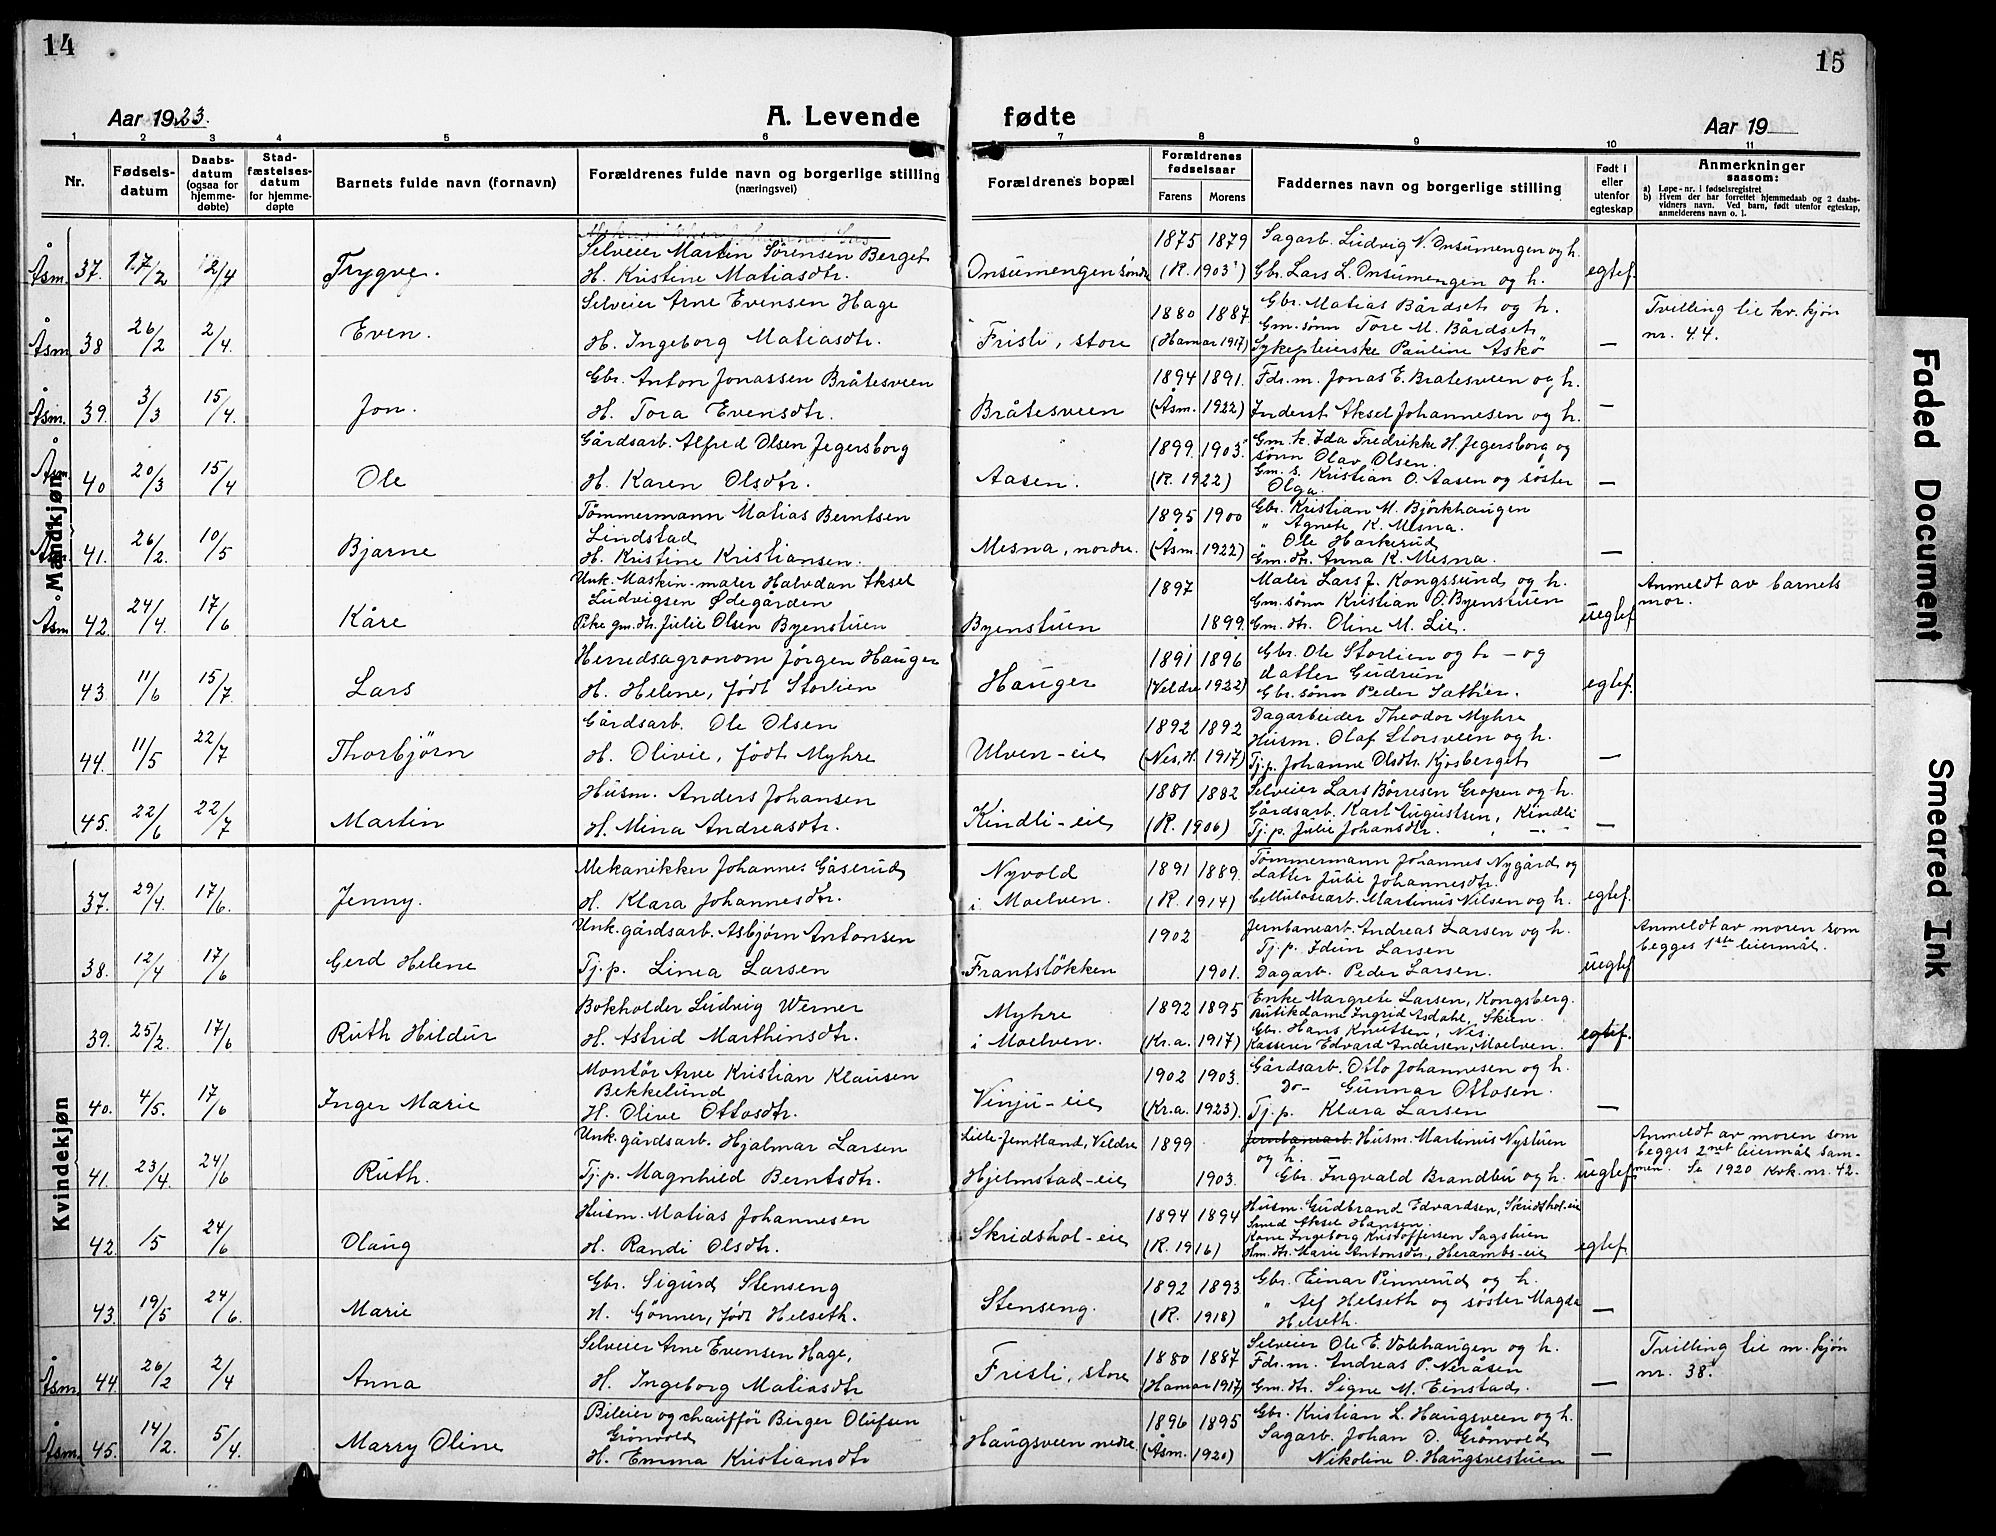 14
Aar 1923.
A. Levende
1 2 3 4 5 6
Nr.
Fødsels-
datum
Daabs-
datum
(ogsaa for
hjemme-
døbte)
Stad-
fæstelses-
datum
for hjemme-
døpte
Barnets fulde navn (fornavn)
Forældrenes fulde navn og borgerlige stilling
(næringsvei)
Mandkjøn
Åsm. 37. 17/2 2/4 Trygve.
Selveier Martin Sørensen Berget
H. Kristine Matiasdtr.
Åsm 38 26/2 2/4. Even.
Selveier Arne Evensen Hage
H. Ingeborg Matiasdtr.
Åsm. 39. 3/3 15/4. Jon.
Gbr. Anton Jonassen Bråtesveen
H. Tora Evensdtr.
Åsm 40 20/3 15/4 Ole
Gårdsarb. Alfred Olsen Jegersborg
H. Karen Olsdtr.
Åsm. 41. 26/2. 10/5 Bjarne
Tømmermann Matias Berntsen
Lindstad
H. Kristine Kristiansen.
Åsm 42. 24/4. 17/6 Kåre
Unk. Maskin-maler Halvdan Aksel
Ludvigsen Ødegården
Pike gm.dtr. Julie Olsen Byenstuen
43. 11/6 15/7. Lars
Herredsagronom Jørgen Hauger
H. Helene, født Storlien
44. 11/5 22/7 Thorbjörn
Gårdsarb. Ole Olsen
H. Olivie, født Myhre
45. 22/6 22/7 Martin
Husm. Anders Johansen
H. Mina Andreasdtr.
Kvindekjøn
37. 29/4. 17/6. Jenny.
Mekanikker Johannes Gåserud
H. Klara Johannesdtr.
38. 12/4 17/6 Gerd Helene
Unk. gårdsarb. Asbjørn Antonsen
Tj.p. Linea Larsen
39. 25/2. 17/6 Ruth Hildur
Bokholder Ludvig Werner
H. Astrid Marthinsdtr.
40. 4/5. 17/6 Inger Marie
Montör Arve Kristian Klausen
Bekkelund
H. Olive Ottosdtr.
41. 23/4. 24/6 Ruth.
Unk. gårdsarb. Hjalmar Larsen
Tj.p. Magnhild Berntsdtr.
42. 1/5 24/6 Olaug
Husm. Matias Johannesen
H. Randi Olsdtr.
43. 19/5 24/6. Marie
Gbr. Sigurd Stenseng
H. Gönner, født Helseth.
Åsm. 44 26/2 2/4 Anna
Selveier Arne Evensen Hage,
H. Ingeborg Matiasdtr
Åsm. 45. 14/2. 5/4. Marry Oline
Bileier og chauffør Birger Olufsen
Grönvold
H. Emma Kristiansdtr
15
fødte
Aar 19
7 8 9 10 11
Forældrenes bopæl
Forældrenes
fødselsaar
Farens Morens
Faddernes navn og borgerlige stilling
Født i
eller
utenfor
egteskap
Anmerkninger
saasom:
a) Løpe-nr. i fødselsregistret
b) Hvem der har forrettet hjemmedaab og 2 daabs-
vidners navn. Ved barn, født utenfor egteskap,
anmelderens navn o. l.
Onsumengen søndre
1875 1879
(R. 1903)
Sagarb. Ludvig N. Onsumengen og h.
Gbr. Lars L. Onsumengen og h.
egtef.
Frisli, store
1880 1887
(Hamar 1917)
Gbr. Matias Bårdset og h.
Gm.sønn Tore M. Bårdset
Sykepleierske Pauline Askø
—
Tvilling til kv. kjön
nr. 44.
Bråtesveen
1894 1891.
(Åsm. 1922)
Fdr.m. Jonas E. Bratesveen og h.
Inderst Aksel Johannesen og h.
—
Aasen.
1899 1903.
(R. 1922)
Gm.k. Ida Fredrikke H. Jegersborg og
sønn Olav Olsen.
Gm.s. Kristian O. Aasen og søster
Olga.
—
Mesna, nordre.
1895 1900
(Åsm. 1922)
Gbr. Kristian M. Björkhaugen
" Agnete K. Mesna.
" Ole Harkerud
Gm.dtr. Anna K. Mesna.
—
Byenstuen
1897
1899.
Maler Lars J. Kongssund og h.
Gm.sønn Kristian O. Byenstuen
Gm.dtr. Oline M. Lie.
uegtef.
Anmeldt av barnets
mor.
Hauger
1891 1896
(Veldre 1922)
Gbr. Ole Storlien og h — og
datter Gudrun
Gbr.sønn Peder Sathien.
egtef.
Ulven-eie
1892 1892
(Nes, H. 1917)
Dagarbeider Theodor Myhre
Husm. Olaf Storsveen og h.
Tj.p. Johanne Olsdtr. Kjosberget
—
Kindli-eie
1881 1882
(R. 1906)
Selveier Lars Børresen Gropen og h.
Gårdsarb. Karl Augustsen, Kindli
Tj.p. Julie Johansdtr. —"—
—
Nyvold
i Moelven.
1891 1889.
(R. 1914)
Tømmermann Johannes Nygård og
datter Julie Johannesdtr.
Cellulosearb. Martinus Nilsen og h.
egtef.
Frantsløkken
1902
1901.
Jernbanearb. Andreas Larsen og h.
Tj.p. Idun Larsen
Dagarb. Peder Larsen.
uegtef.
Anmeldt av moren som
begges 1ste leiermål.
Myhre
i Moelven.
1892 1895
(Kr.a. 1917)
Enke Margrete Larsen, Kongsberg.
Butikdame Ingrid Asdahl, Skien.
Gbr. Hans Knutsen, Nes.
Kasserer Edvard Andersen, Moelven.
egtef.
Vinju-eie
1902 1903.
(Kr.a. 1923).
Gårdsarb. Otto Johannesen og h.
Do— Gunnar Ottosen.
Tj.p. Klara Larsen
—
Lille-Jemtland, Veldre
Hjelmstad-eie
1899
1903.
Jernbanearb. Husm. Martinus Nystuen
og h.
Gbr. Ingvald Brandbu og h.
uegtef.
Anmeldt av moren som
begges 2net leiermål sam-
men. Se 1920 Kvk. nr. 42.
Skridshol-eie
1894 1894
(R. 1916)
Husm. Gudbrand Edvardsen, Skridshol-eie
Smed Aksel Hansen.
Kone Ingeborg Kristoffersen Sagstuen
Hm.dtr. Marie Antonsdtr., Herambs-eie
egtef.
Stenseng.
1892 1893
(R. 1918)
Gbr. Einar Pinnerud og h.
" Alf Helseth og søster Magda
Helseth.
—
Frisli, store
1880 1887
(Hamar 1917)
Selveier Ole E. Volehaugen og h.
Fdr.m. Andreas P. Neråsen
Gm.dtr. Signe M. Einstad.
—
Tvilling til m. kjön
nr. 38.
Haugsveen nedre.
1896 1895
(Åsm. 1920)
Gbr. Kristian L. Haugsveen og h.
Sagarb. Johan O. Grönvold
Nikoline O. Haugsvestuen
—
Faded Document
Smeared Ink